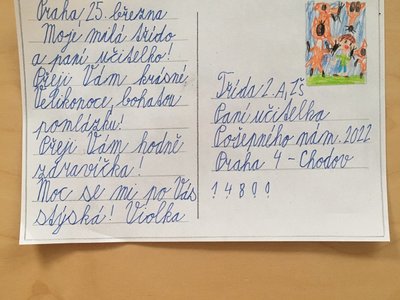 Praha, 25. března
Moje milá třído
a paní učitelko!
Přeji Vám krásné
Velikonoce, bohatou
pomlázku!
Přeji Vám hodně
zdravíčka!
Moc se mi po Vás
stýská! Violka
Třída 2. A, ZŠ
Paní učitelka
Pošepného nám. 2022
Praha 4 - Chodov
14800